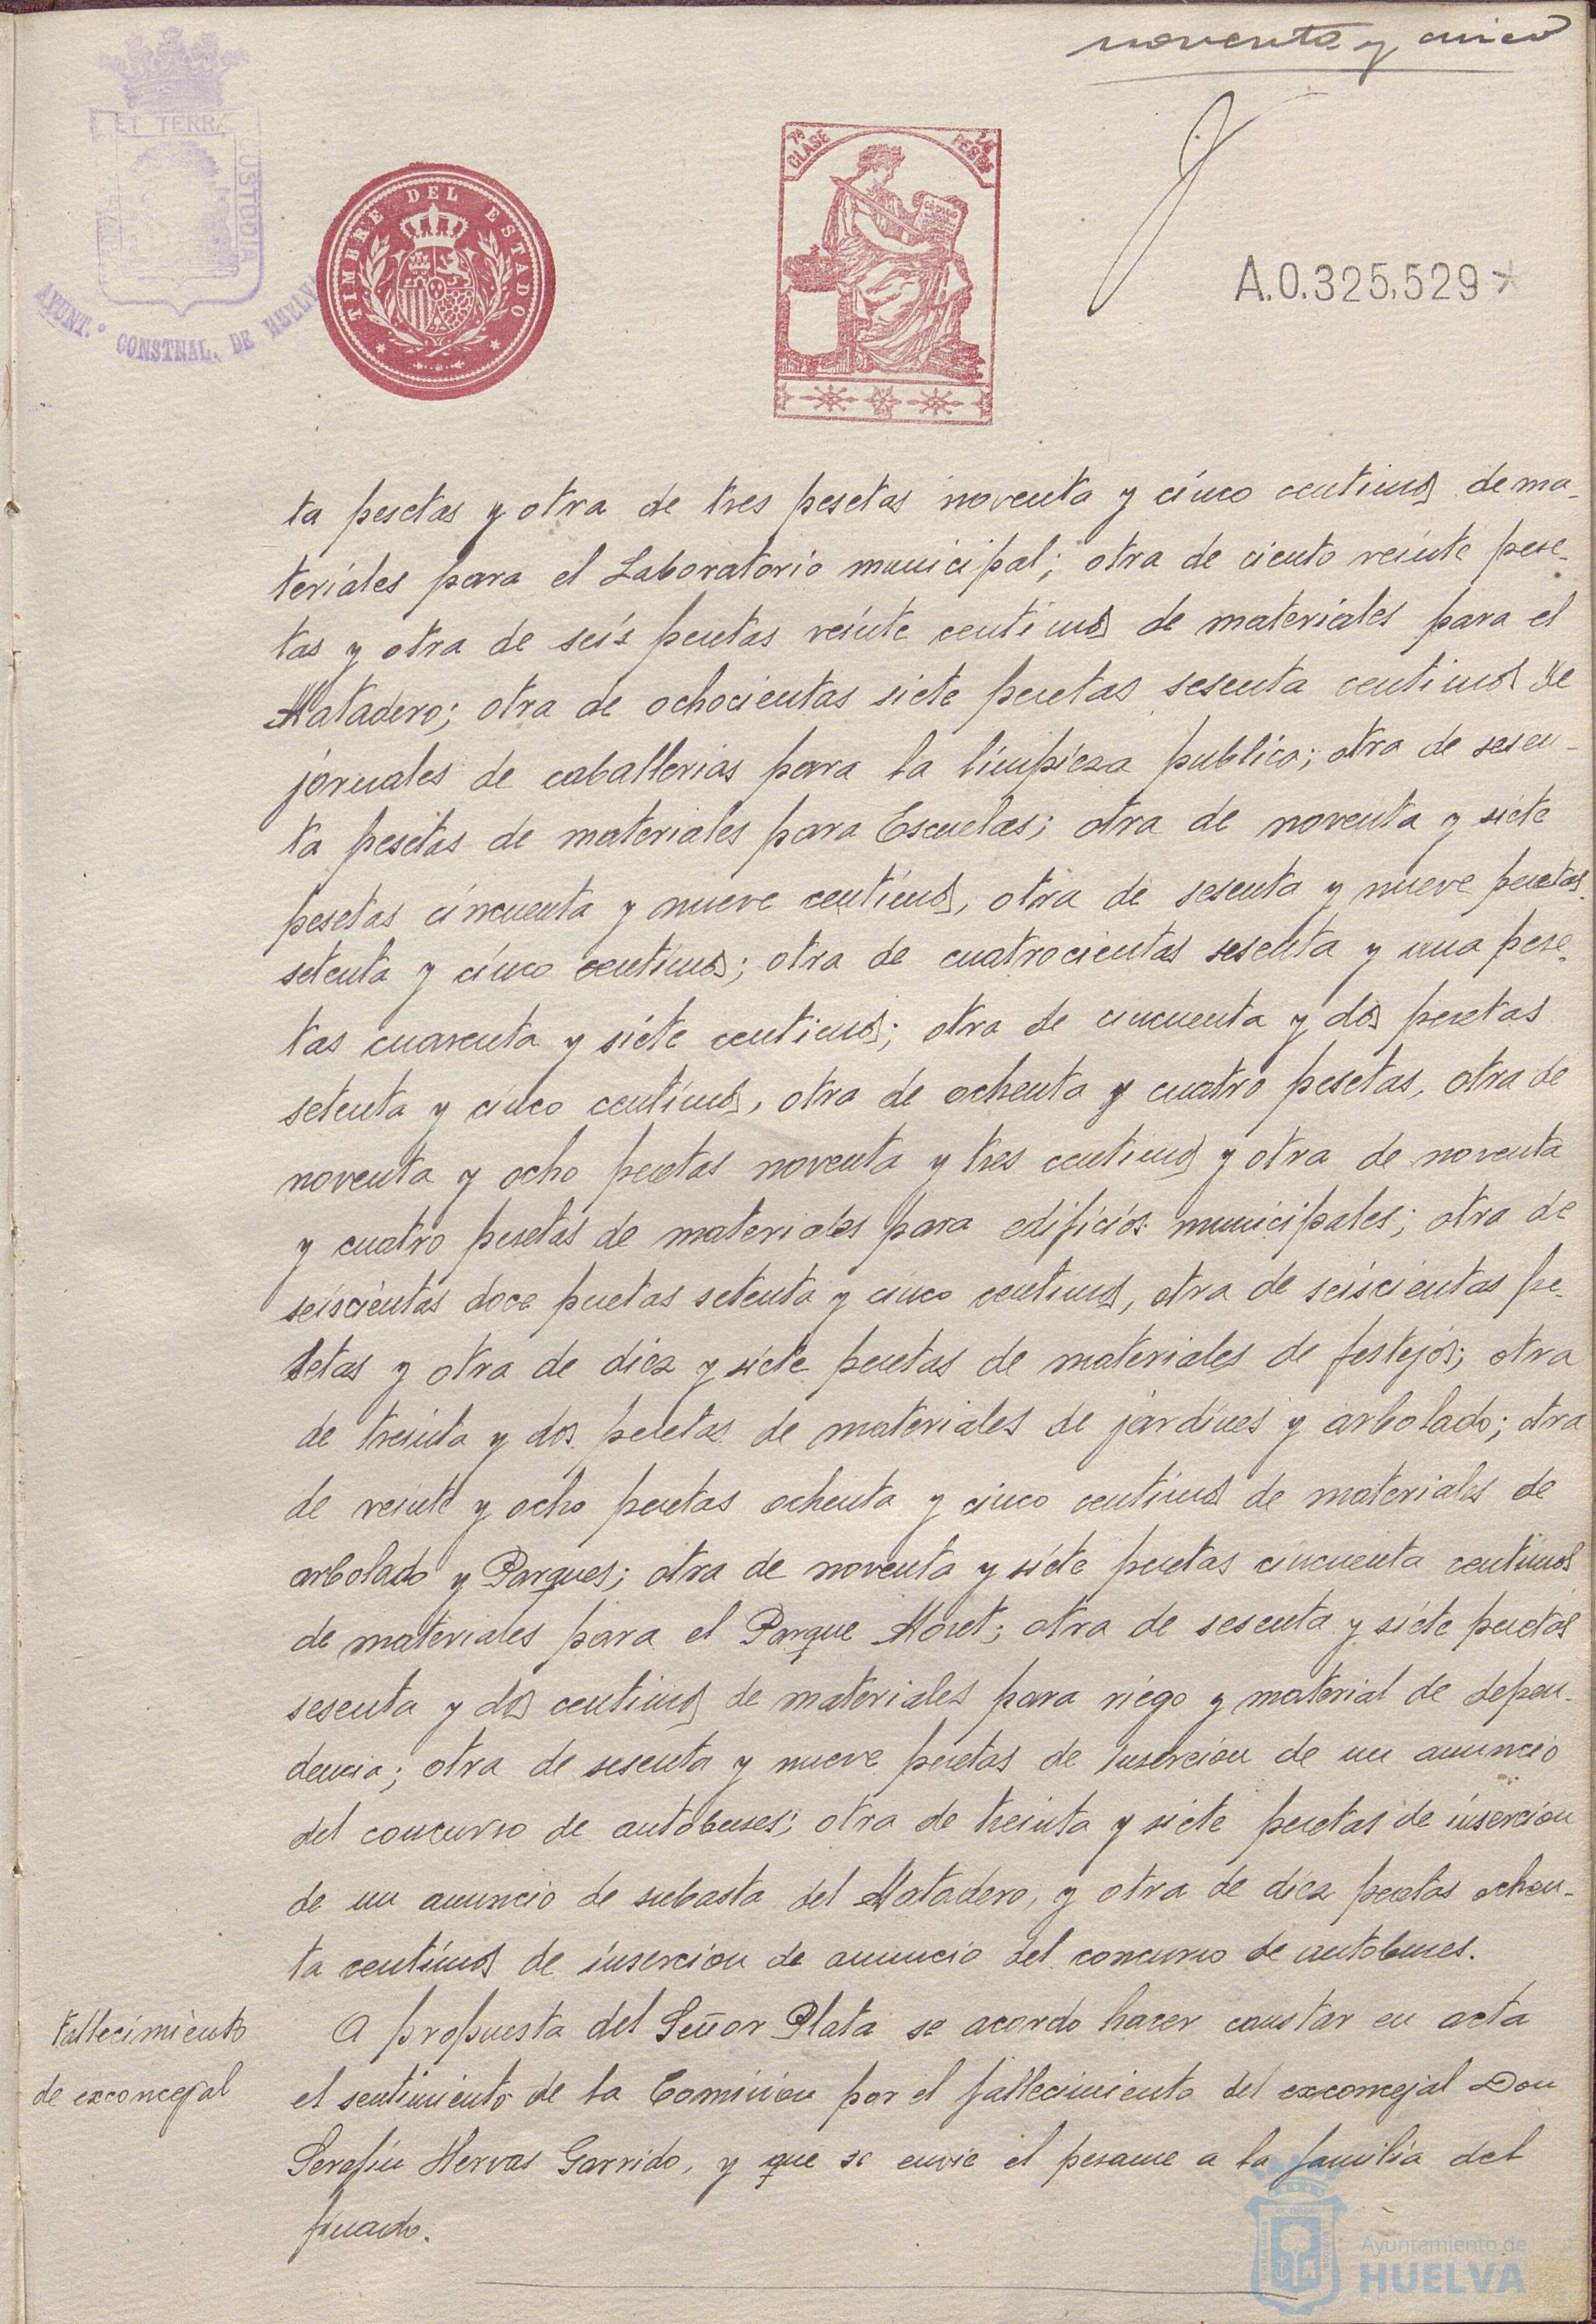 noventa y cinco
ET TERRÆ
USTODIA
AYUNT.º CONSTNAL. DE HUELV
TIMBRE DEL ESTADO
7ª CLASE
PESETA
A.0.325,529
ta pesetas y otra de tres pesetas noventa y cinco centimos de ma-
teriales para el Laboratorio municipal; otra de ciento veinte pese-
tas y otra de seis pesetas veinte centimos de materiales para el
Matadero; otra de ochocientas siete pesetas sesenta centimos de
jornales de caballerias para la limpieza publica; otra de sesen-
ta pesetas de materiales para Escuelas; otra de noventa y siete
pesetas cincuenta y nueve centimos, otra de sesenta y nueve pesetas
setenta y cinco centimos; otra de cuatrocientas sesenta y una pese-
tas cuarenta y siete centimos; otra de cincuenta y dos pesetas
setenta y cinco centimos, otra de ochenta y cuatro pesetas, otra de
noventa y ocho pesetas noventa y tres centimos y otra de noventa
y cuatro pesetas de materiales para edificios municipales; otra de
seiscientas doce pesetas setenta y cinco centimos, otra de seiscientas pe-
setas y otra de diez y siete pesetas de materiales de festejos; otra
de treinta y dos pesetas de materiales de jardines y arbolado; otra
de veinte y ocho pesetas ochenta y cinco centimos de materiales de
arbolado y Parques; otra de noventa y siete pesetas cincuenta centimos
de materiales para el Parque Moret; otra de sesenta y siete pesetas
sesenta y dos centimos de materiales para riego y material de depen-
dencia; otra de sesenta y nueve pesetas de insercion de un anuncio
del concurso de autobuses; otra de treinta y siete pesetas de insercion
de un anuncio de subasta del Matadero, y otra de diez pesetas ochen-
ta centimos de insercion de anuncio del concurso de autobuses.
Fallecimiento
de exconcejal
A propuesta del Señor Plata se acordo hacer constar en acta
el sentimiento de la Comision por el fallecimiento del exconcejal Don
Serafin Hervas Garrido, y que se envie el pesame a la familia del
finado.
Ayuntamiento de
HUELVA